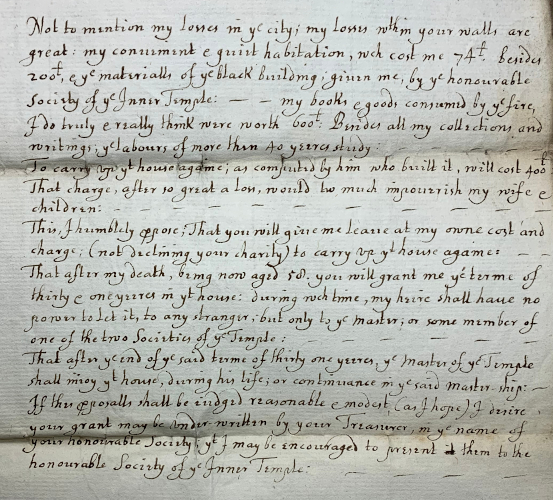 Not to mention my losses in yᵉ city; my losses wᵗhin your walls are
great: my conuiment & quiet habitation, wch cost me 74ˡ. besides
200ˡ, & yᵉ materialls of yᵉ black building, giuen me, by yᵉ honourable
Society of yᵉ Inner Temple: — — my books & goods consumed by yᵉ fire,
I do truly & really think were worth 600ˡ. Besides all my collections and
writings; yᵉ labours of more then 40 yeeres study: — — — —
To carry vp yᵗ house againe; as computed by him who built it, will cost 400ˡ
That charge, after so great a loss, would too much impouerish my wife &
children: — — — — — — — —
This, I humbly ꝓpose; That you will giue me leaue at my owne cost and
charge; (not declining your charity) to carry vp yᵗ house againe: — —
That after my death, being now aged 58. you will grant me yᵉ terme of
thirty & one yeeres in yᵗ house: during wch time, my heire shall haue no
power to let it, to any stranger; but only to yᵉ master; or some member of
one of the two Societies of yᵉ Temple: — — — — —
That after yᵉ end of yᵉ said terme of thirty one yeeres, yᵉ Master of yᵉ Temple
shall inioy yᵗ house, during his life; or continuance in yᵉ said master-ship: —
If this ꝓposalls shall be iudged reasonable & modest, (as I hope) I desire
your grant may be vnder-written by your Treasurer, in yᵉ name of
your honourable Society; yᵗ I may be encouraged to present them to the
honourable Society of yᵉ Inner Temple: — — — —